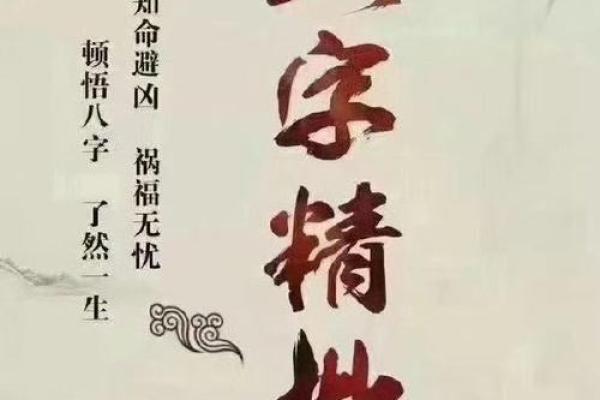 字精批
知命避凶 祸福无忧
顿悟八字 了然一生